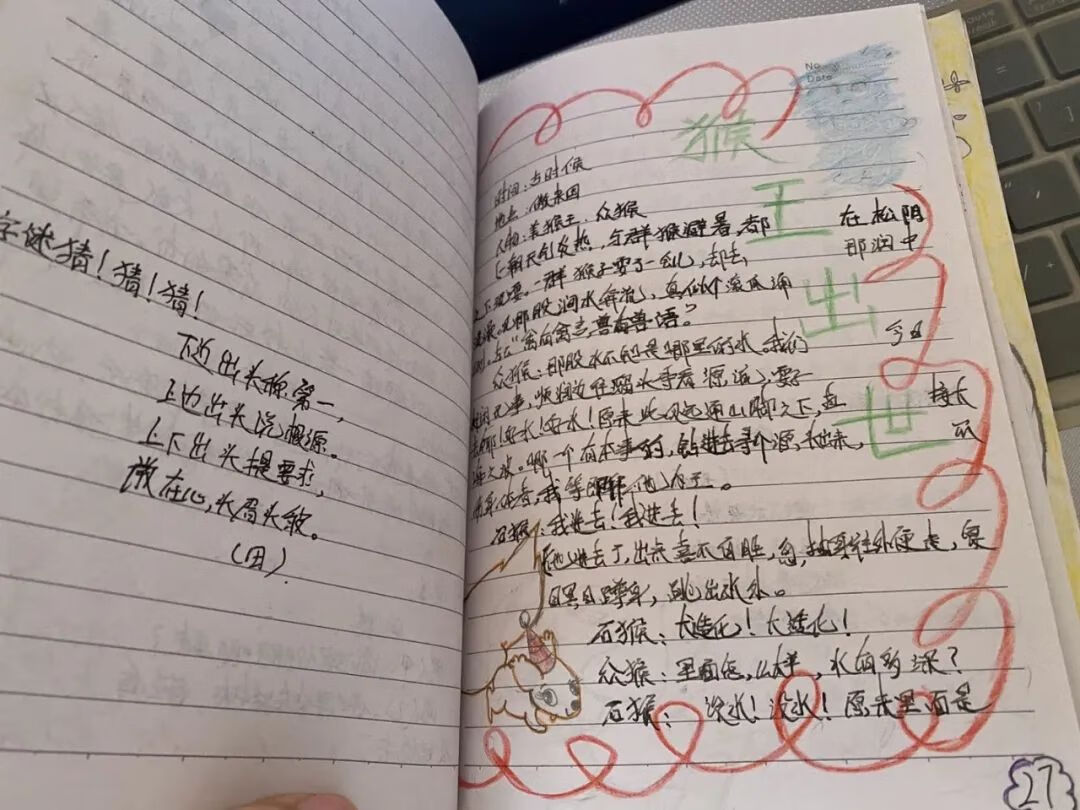 字谜猜！猜！猜！
下边出头第一，
上边出头说根源。
上下出头提要求，
放在心头眉头皱。
(田)
No
Date
猴
王
出
世
时间：当时候
地点：傲来国
人物：美猴王、众猴
一朝天气炎热，与群猴避暑，都 在松阴
之下玩耍。一群猴子耍了一会儿，却去 那涧中
洗澡。见那股涧水奔流，真似个滚瓜涌
溅。古云“禽有禽言兽有兽语？
众猴：那股水不知是哪里的水。我们 今日
无事，顺涧边往上溜头寻看源流，耍子
去耶！好水！好水！原来此处远通山脚之下，直 接大
海之波。哪一个有本事的，钻进去寻个源头出来， 不
伤身体者，我等即拜他为王。
石猴：我进去！我进去！
他进去了，出来喜不自胜，忽抽身往外便走，复
瞑目蹲身，跳出水外。
石猴：大造化！大造化！
众猴：里面怎么样，水有多深？
石猴： 没水！没水！原来里面是
27